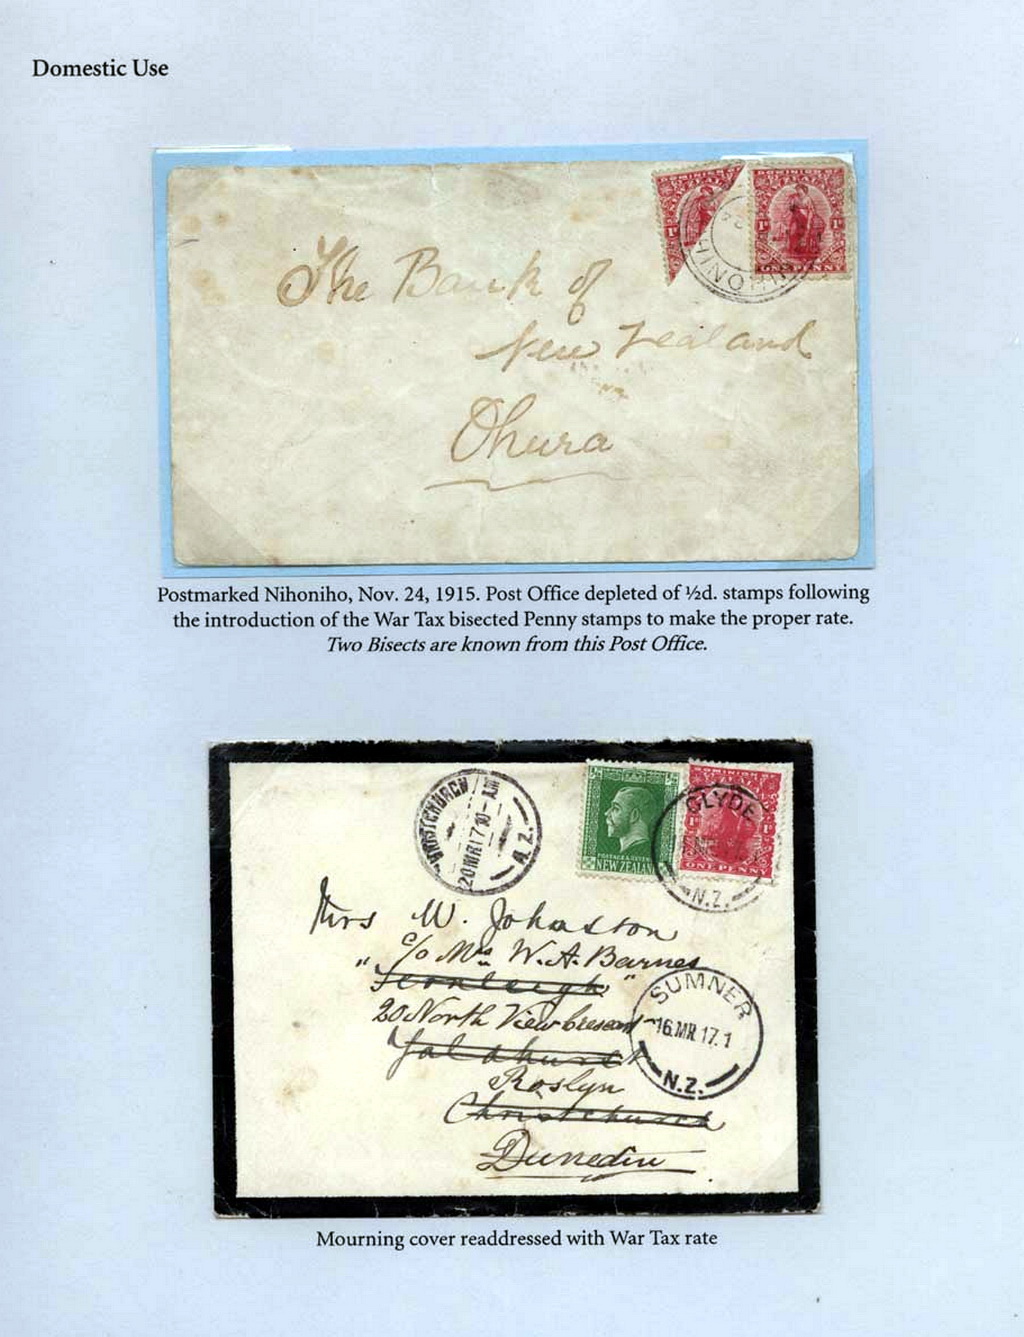 Domestic Use
1d 1d
ONE PENNY
NIHONIHO
The Bank of
New Zealand
Ohura
Postmarked Nihoniho, Nov. 24, 1915. Post Office depleted of ½d. stamps following
the introduction of the War Tax bisected Penny stamps to make the proper rate.
Two Bisects are known from this Post Office.
CHRISTCHURCH
20 MR 17 10-AM
N.Z.
½d ½d
POSTAGE & REVENUE
NEW ZEALAND
1d 1d
ONE PENNY
CLYDE
N.Z.
Mrs W. Johnston
c/o Mrs W. A. Barnes
"Fernleigh"
20 North View Crescent
Yaldhurst
Roslyn
Christchurch
Dunedin
SUMNER
16.MR.17.1
N.Z.
Mourning cover readdressed with War Tax rate